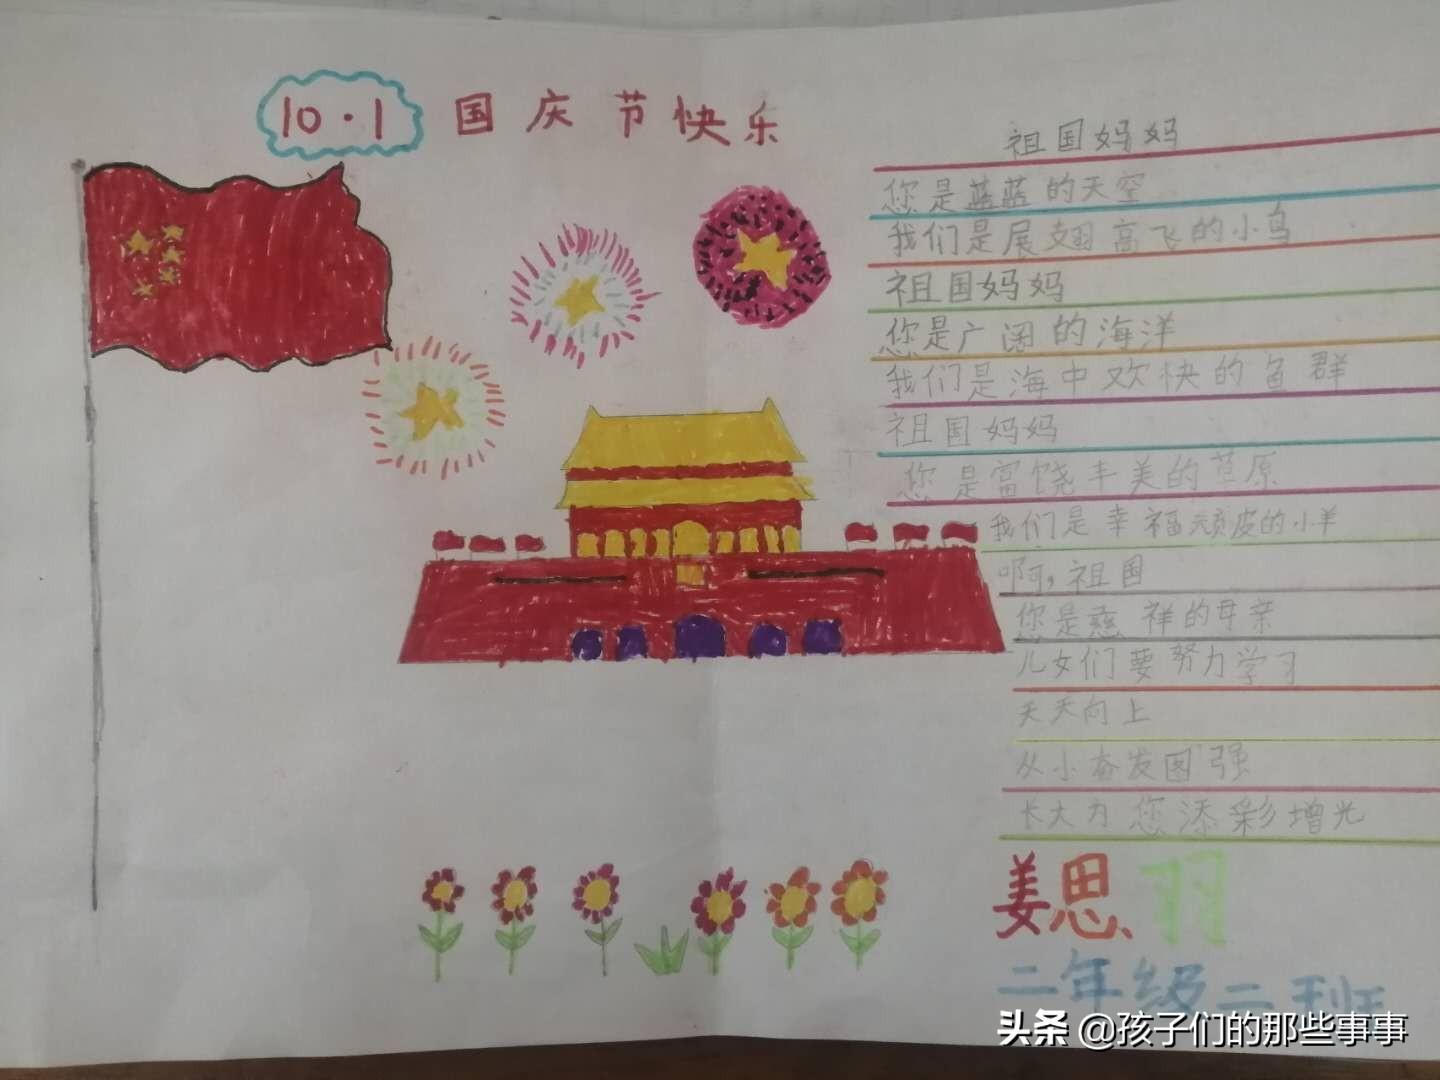 10·1 国庆节快乐
祖国妈妈
您是蓝蓝的天空
我们是展翅高飞的小鸟
祖国妈妈
您是广阔的海洋
我们是海中欢快的鱼群
祖国妈妈
您是富饶丰美的草原
我们是幸福顽皮的小羊
啊，祖国
您是慈祥的母亲
儿女们要努力学习
天天向上
从小奋发图强
长大为您添彩增光
姜思羽
二年级二班
头条 @孩子们的那些事事